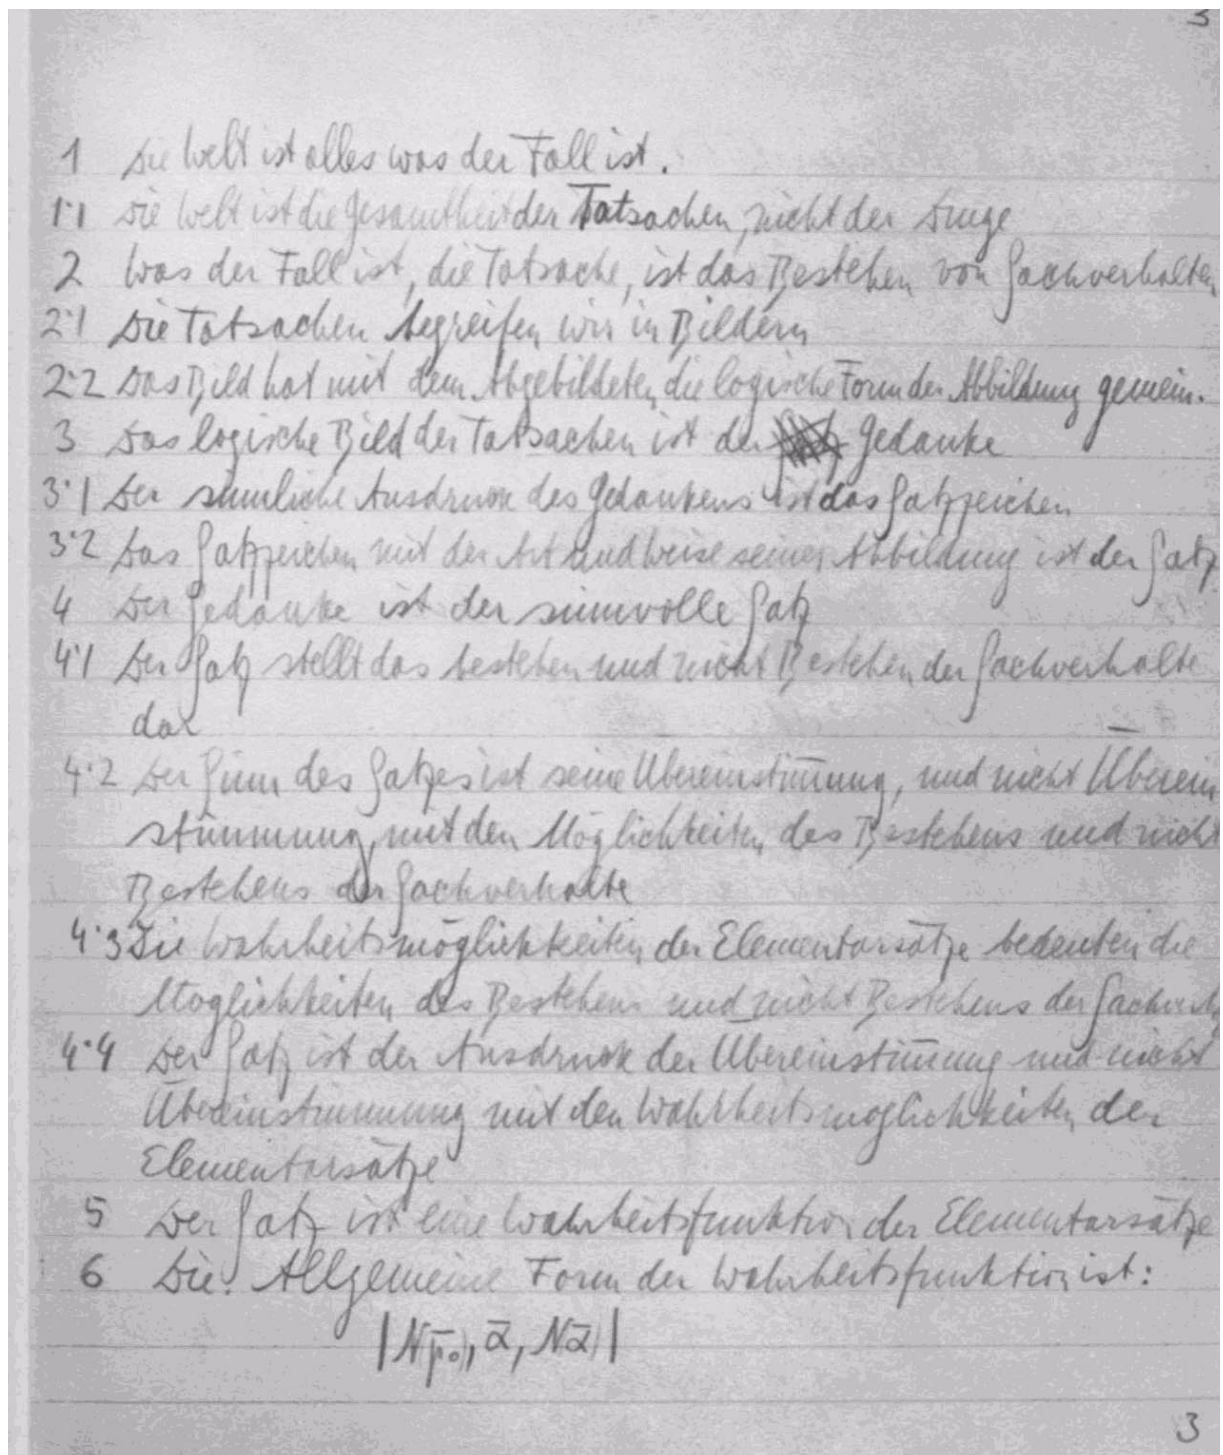 3
1 Die Welt ist alles was der Fall ist.
1·1 Die Welt ist die Gesamtheit der Tatsachen, nicht der Dinge
2 Was der Fall ist, die Tatsache, ist das Bestehen von Sachverhalten
2·1 Die Tatsachen begreifen wir in Bildern
2·2 Das Bild hat mit dem Abgebildeten die logische Form der Abbildung gemein.
3 Das logische Bild der Tatsachen ist der Gedanke
3·1 Der sinnliche Ausdruck des Gedankens ist das Satzzeichen
3·2 Das Satzzeichen mit der Art und Weise seiner Abbildung ist der Satz
4 Der Gedanke ist der sinnvolle Satz
4·1 Der Satz stellt das bestehen und nicht Bestehen der Sachverhalte
dar
4·2 Der Sinn des Satzes ist seine Übereinstimmung, und nicht Überein
stimmung mit den Möglichkeiten des Bestehens und nicht
Bestehens der Sachverhalte
4·3 Die Wahrheitsmöglichkeiten der Elementarsätze bedeuten die
Möglichkeiten des Bestehens und nicht Bestehens der Sachverh
4·4 Der Satz ist der Ausdruck der Übereinstimmung und nicht
Übereinstimmung mit den Wahrheitsmöglichkeiten der
Elementarsätze
5 Der Satz ist eine Wahrheitsfunktion der Elementarsätze
6 Die Allgemeine Form der Wahrheitsfunktion ist:
|N(p̄₀), ᾱ, Nᾱ|
3